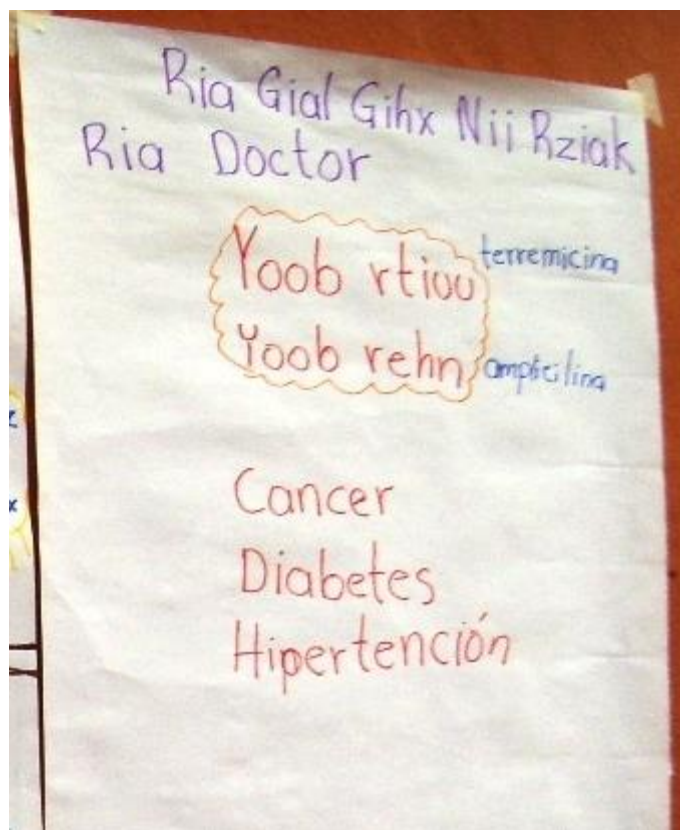 Ria Gial Gihx Nii Rziak
Ria Doctor
Yoob rtiuu
terremicina
Yoob rehn
ampicilina
Cancer
Diabetes
Hipertención